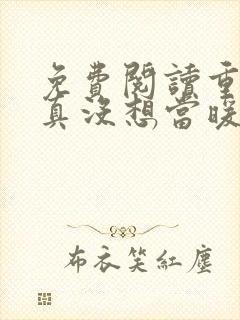 免費閱讀重
真沒想當暖
布衣笑紅塵